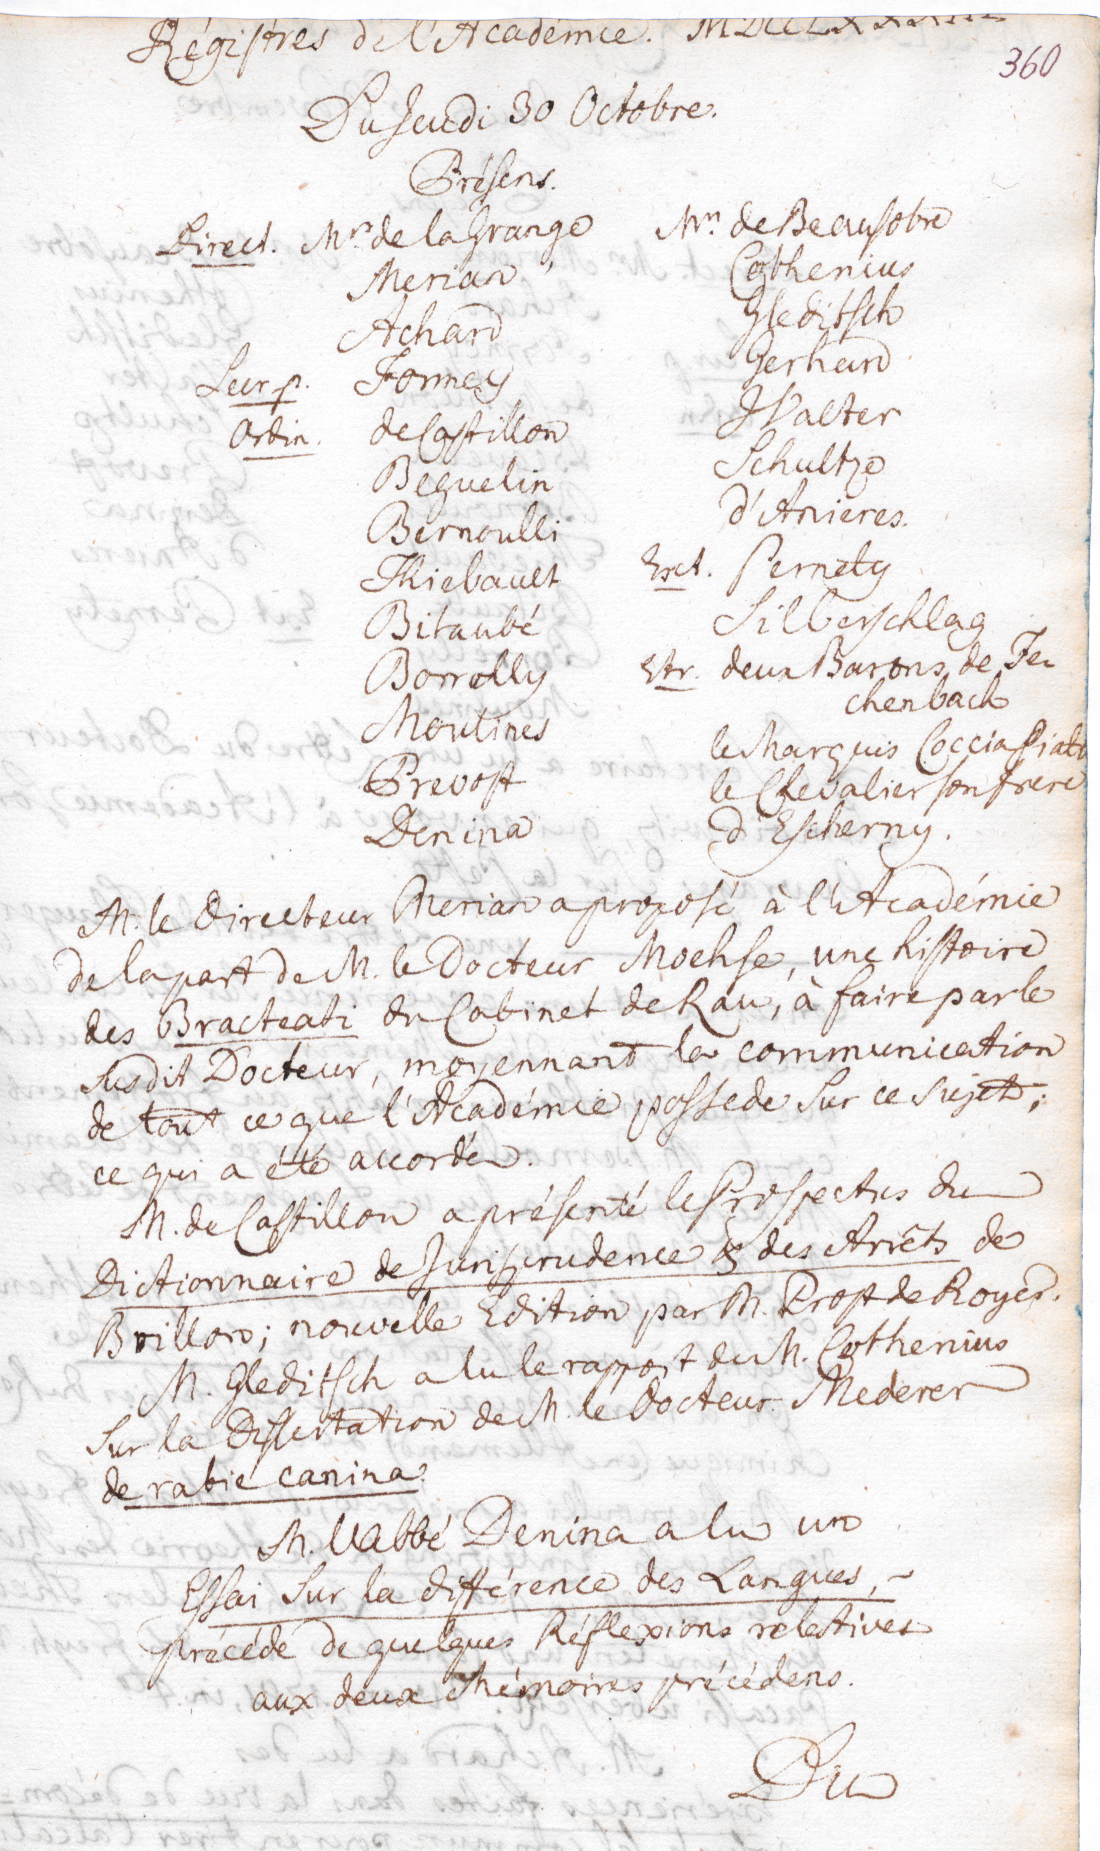 Régistres de l'Académie. MDCCLXXXIII
360
Du Jeudi 30 Octobre.
Présens.
Direct. Mrs. de la Grange
Merian
Achard
Secr. p. Formey
Ordin. de Castillon
Beguelin
Bernoulli
Thiebault
Bitaubé
Borrelly
Moulines
Prevost
Denina
Mrs. de Beausobre
Cothenius
Gleditsch
Gerhard
Walter
Schultze
d'Anieres.
Ext. Pernety
Silberschlag
Etr. deux Barons de Fe-
chenbach
le Marquis Coccia Piati
le Chevalier son frere
d'Escherny.
M. le Directeur Merian a proposé à l'Académie
de la part de M. le Docteur Moehse, une histoire
des Bracteati du Cabinet de Rau, à faire par le
susdit Docteur, moyennant la communication
de tout ce que l'Académie possede sur ce sujet;
ce qui a été accordé.
M. de Castillon a présenté le Prospectus du
Dictionnaire de Jurisprudence & des Arrêts de
Brillon; nouvelle Edition par M. Prost de Royer.
M. Gleditsch a lu le rapport de M. Cothenius
sur la Dissertation de M. le Docteur Mederer
de rabie canina.
M. l'Abbé Denina a lu un
Essai sur la différence des Langues, ~
précédé de quelques Réflexions relatives
aux deux Mémoires précédens.
Du